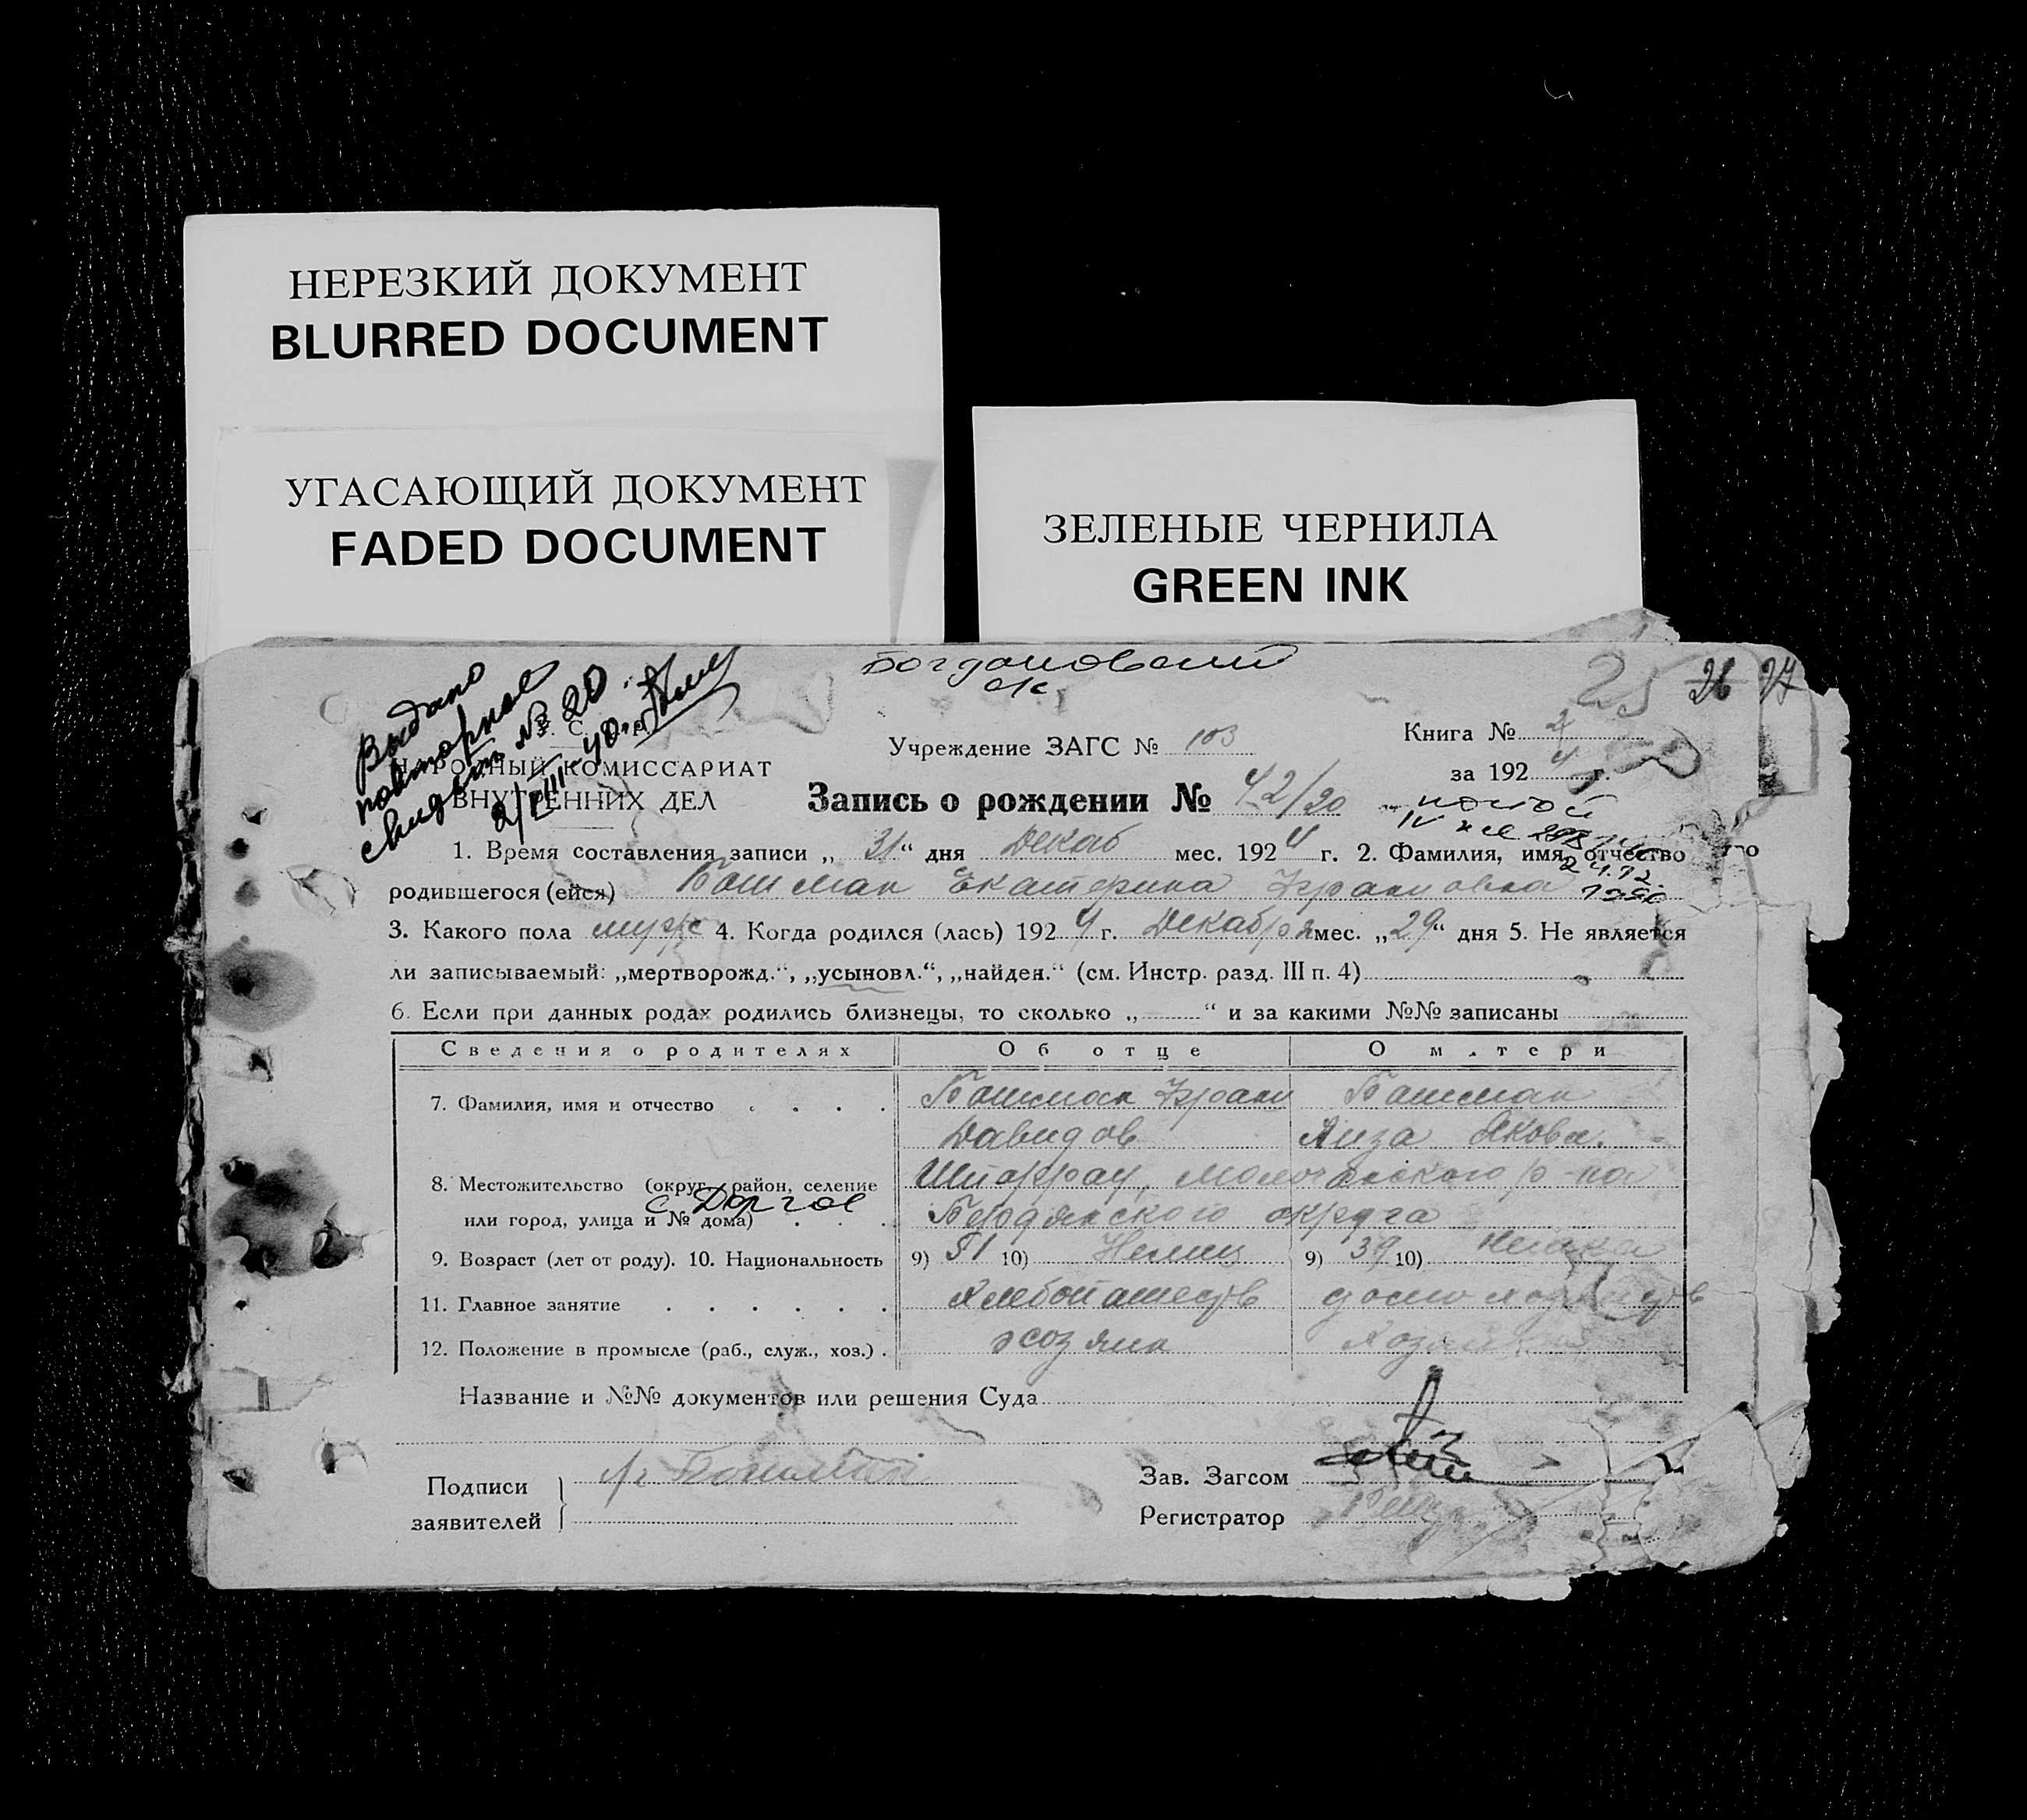 НЕРЕЗКИЙ ДОКУМЕНТ
BLURRED DOCUMENT
УГАСАЮЩИЙ ДОКУМЕНТ
FADED DOCUMENT
ЗЕЛЕНЫЕ ЧЕРНИЛА
GREEN INK
Богдановский
с/с
25 26 27
Выдано
повторное
свидет. № 20.
2/VIII-40г.
Учреждение ЗАГС № 103
Книга № 2
за 1924 г.
НАРОДНЫЙ КОМИССАРИАТ
ВНУТРЕННИХ ДЕЛ
Запись о рождении № 42/20
1. Время составления записи „31“ дня Декаб мес. 1924 г. 2. Фамилия, имя, отчество
родившегося (ейся) Башман Екатерина Францовна
3. Какого пола муж 4. Когда родился (лась) 1924 г. Декабря мес. „29“ дня 5. Не является
ли записываемый: „мертворожд.“, „усыновл.“, „найден.“ (см. Инстр. разд. III п. 4)
6. Если при данных родах родились близнецы, то сколько „—“ и за какими №№ записаны
Сведения о родителях Об отце О матери
7. Фамилия, имя и отчество Башман Франц Башман
Давидов Яковл.
8. Местожительство (округ, район, селение Шпаррау, Молочанского р-на
с. Долгое
или город, улица и № дома) Бердянского округа
9. Возраст (лет от роду). 10. Национальность 9) 51 10) Немец 9) 39 10) Немка
11. Главное занятие Хлебопашеств
12. Положение в промысле (раб., служ., хоз.) хозяин Хозяйка
Название и №№ документов или решения Суда
Подписи
заявителей
Зав. Загсом
Регистратор